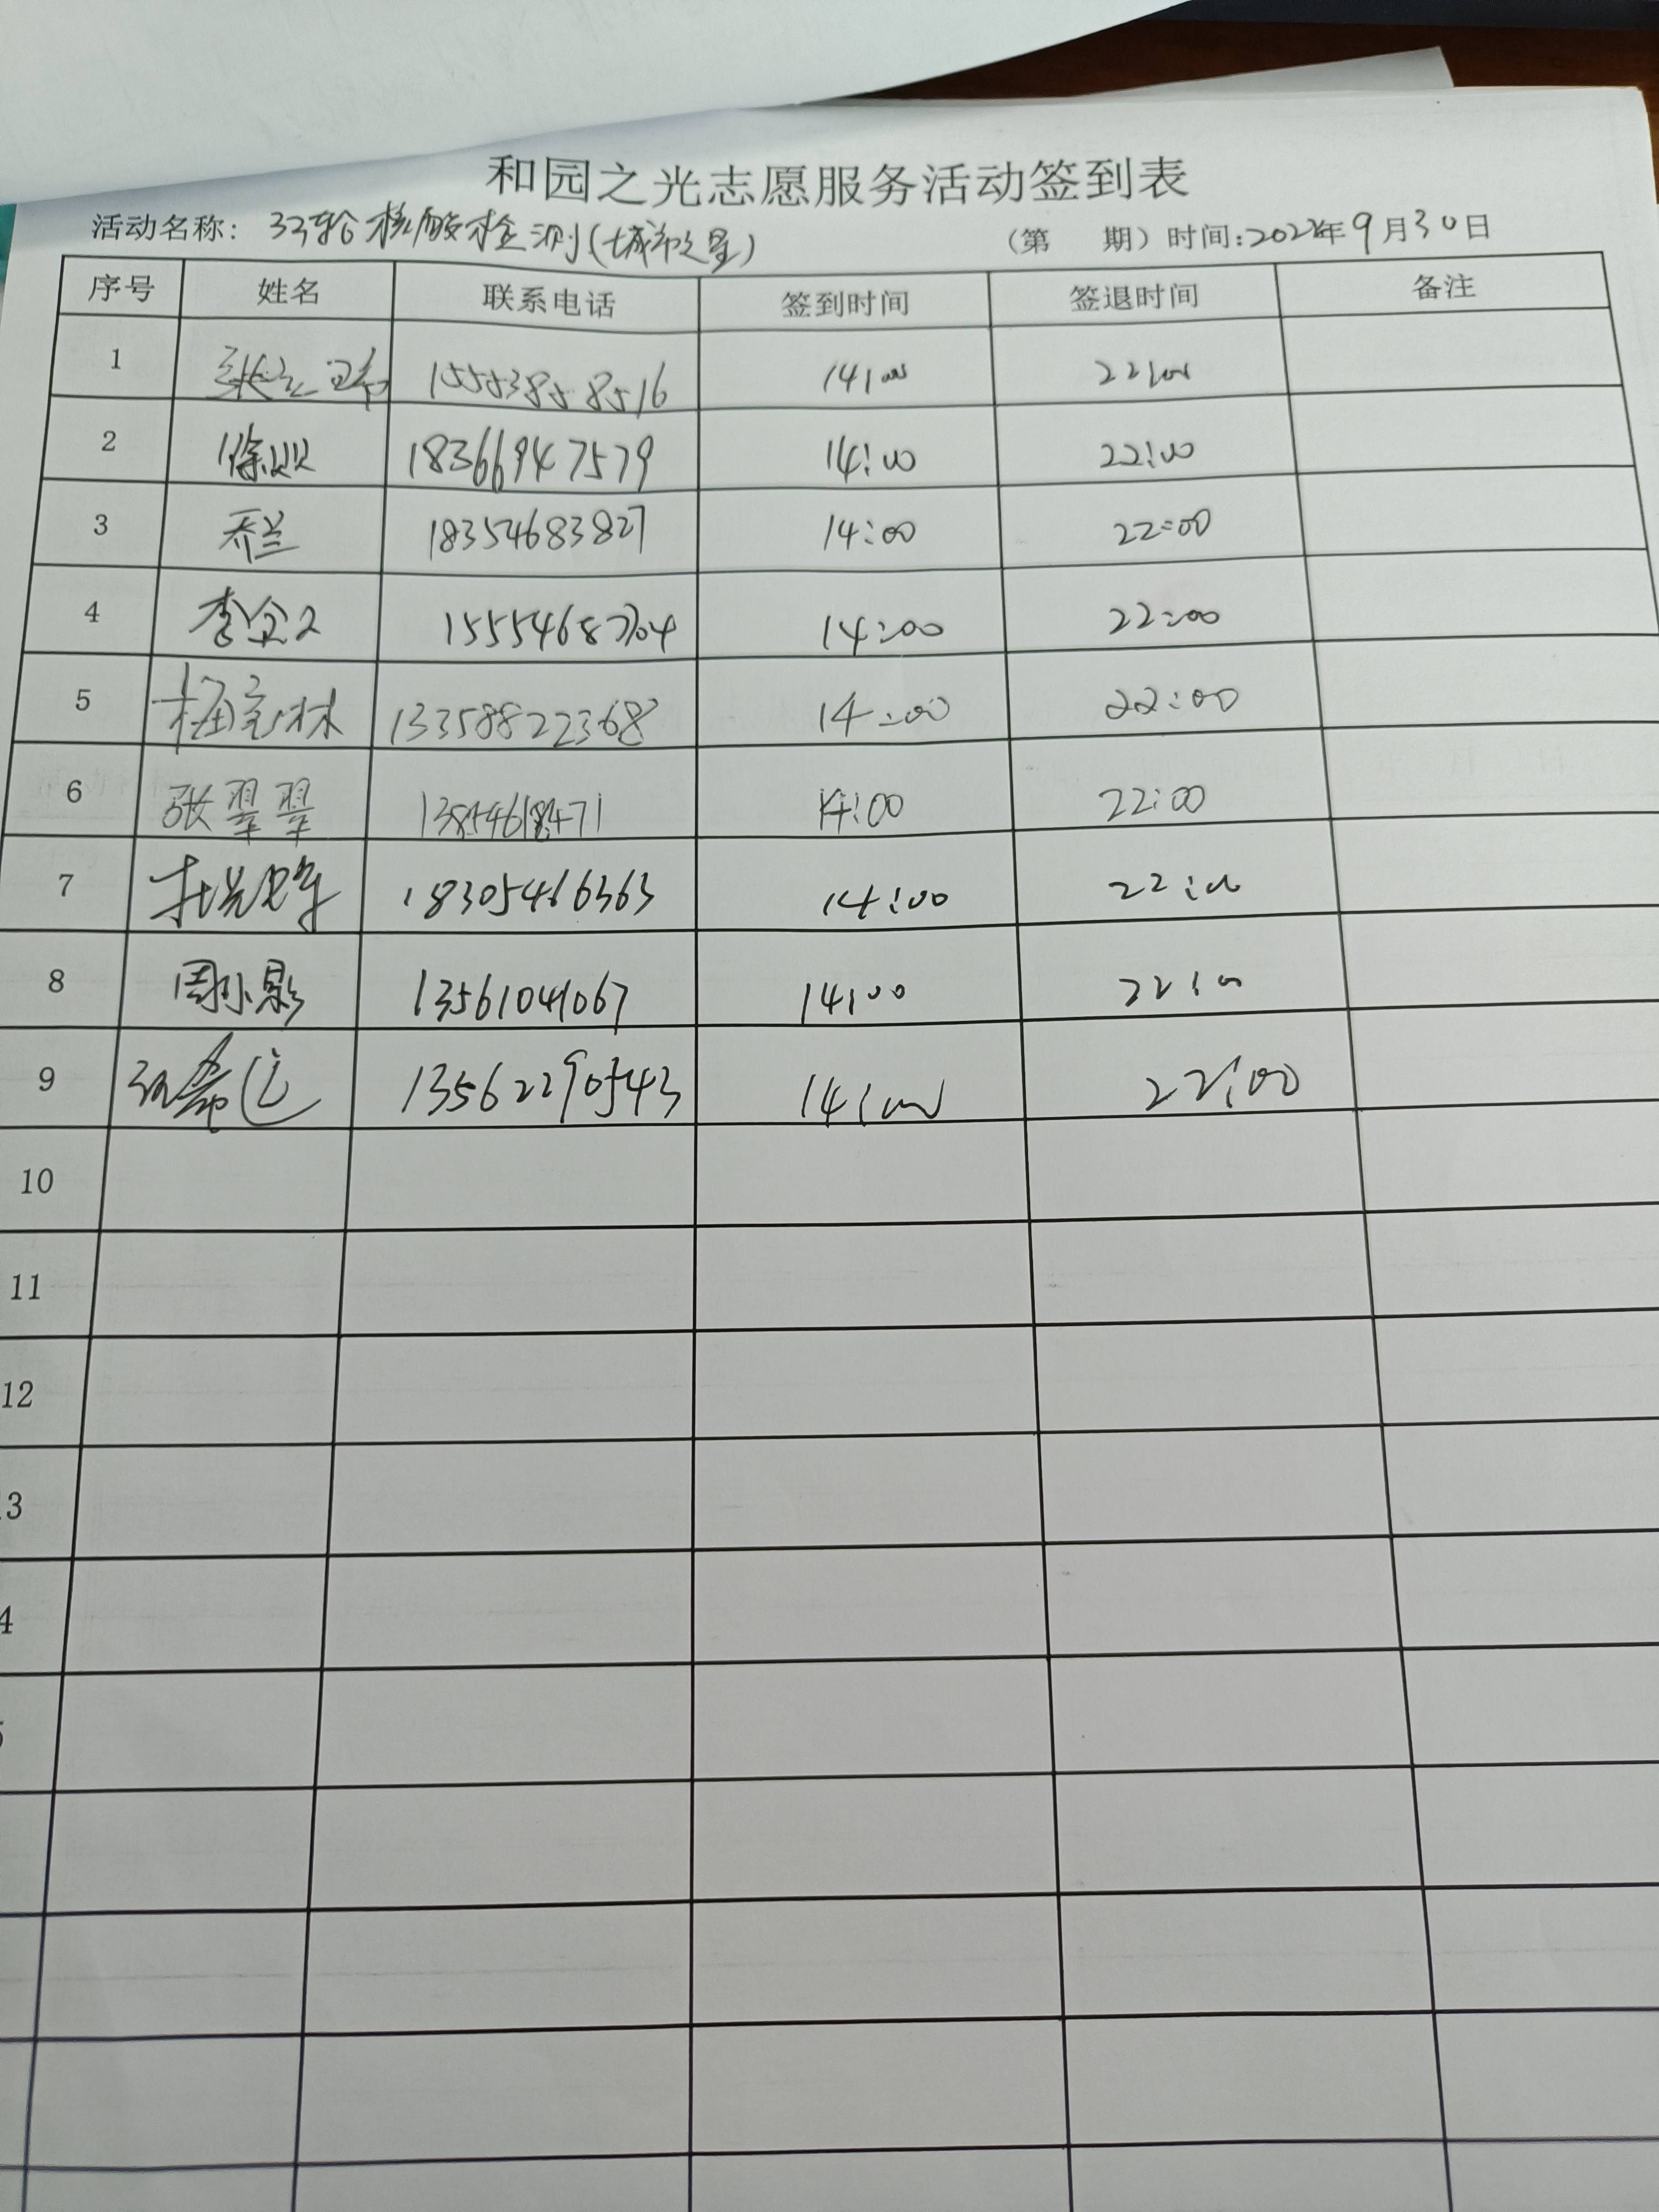 和园之光志愿服务活动签到表
活动名称: 33轮核酸检测(城市之星) (第 期) 时间:2022年9月30日
序号 姓名 联系电话 签到时间 签退时间 备注
1 15553858516 14:00 22:00
2 徐贝贝 18366947579 14:00 22:00
3 乔兰 18354683827 14:00 22:00
4 李金 14:00 22:00
5 梅宝林 13358822368 14:00 22:00
6 张翠翠 14:00 22:00
7 18305466363 14:00 22:00
8 周小影 13561041067 14:00 22:00
9 13562290543 14:00 22:00
10
11
12